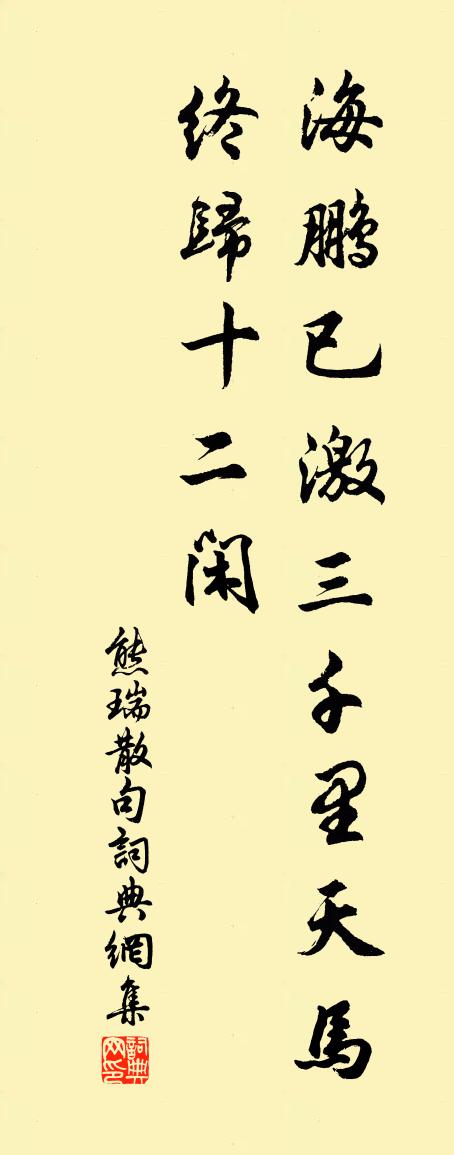 海鹏已激三千里天馬
終歸十二閑
熊瑞散句詞典網集
詞典
网印